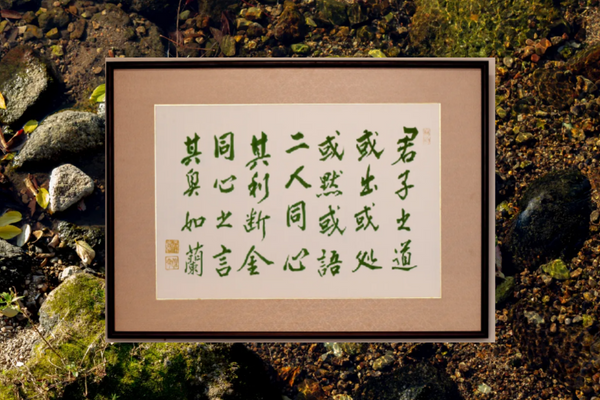 君子之道
或出或处
或默或語
二人同心
其利断金
同心之言
其臭如蘭